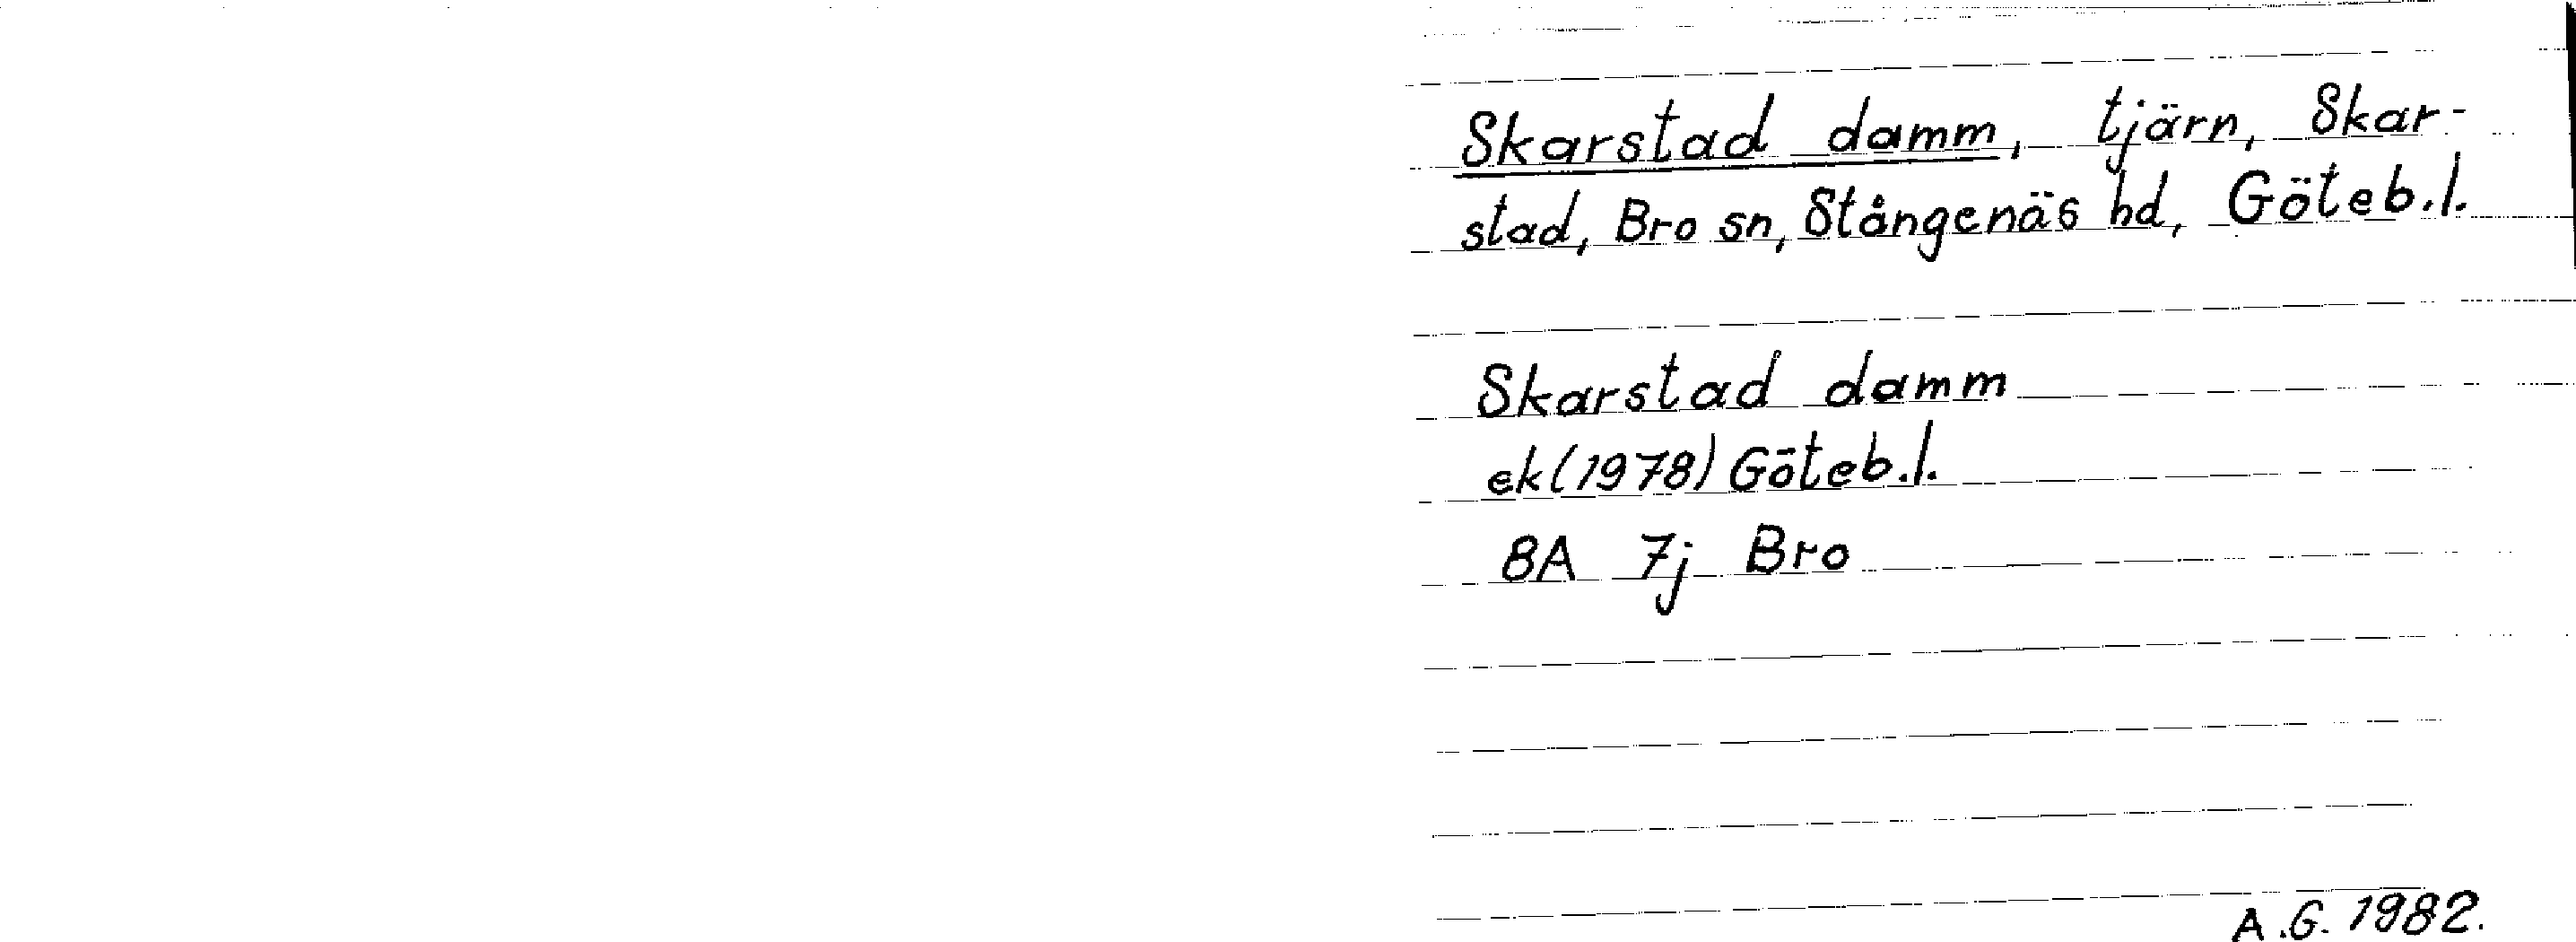 Skarstad damm, tjärn, Skar-
stad, Bro sn, Stångenäs hd, Göteb.l.
Skarstad damm
ek(1978) Göteb.l.
8A 7j Bro
A.G. 1982.